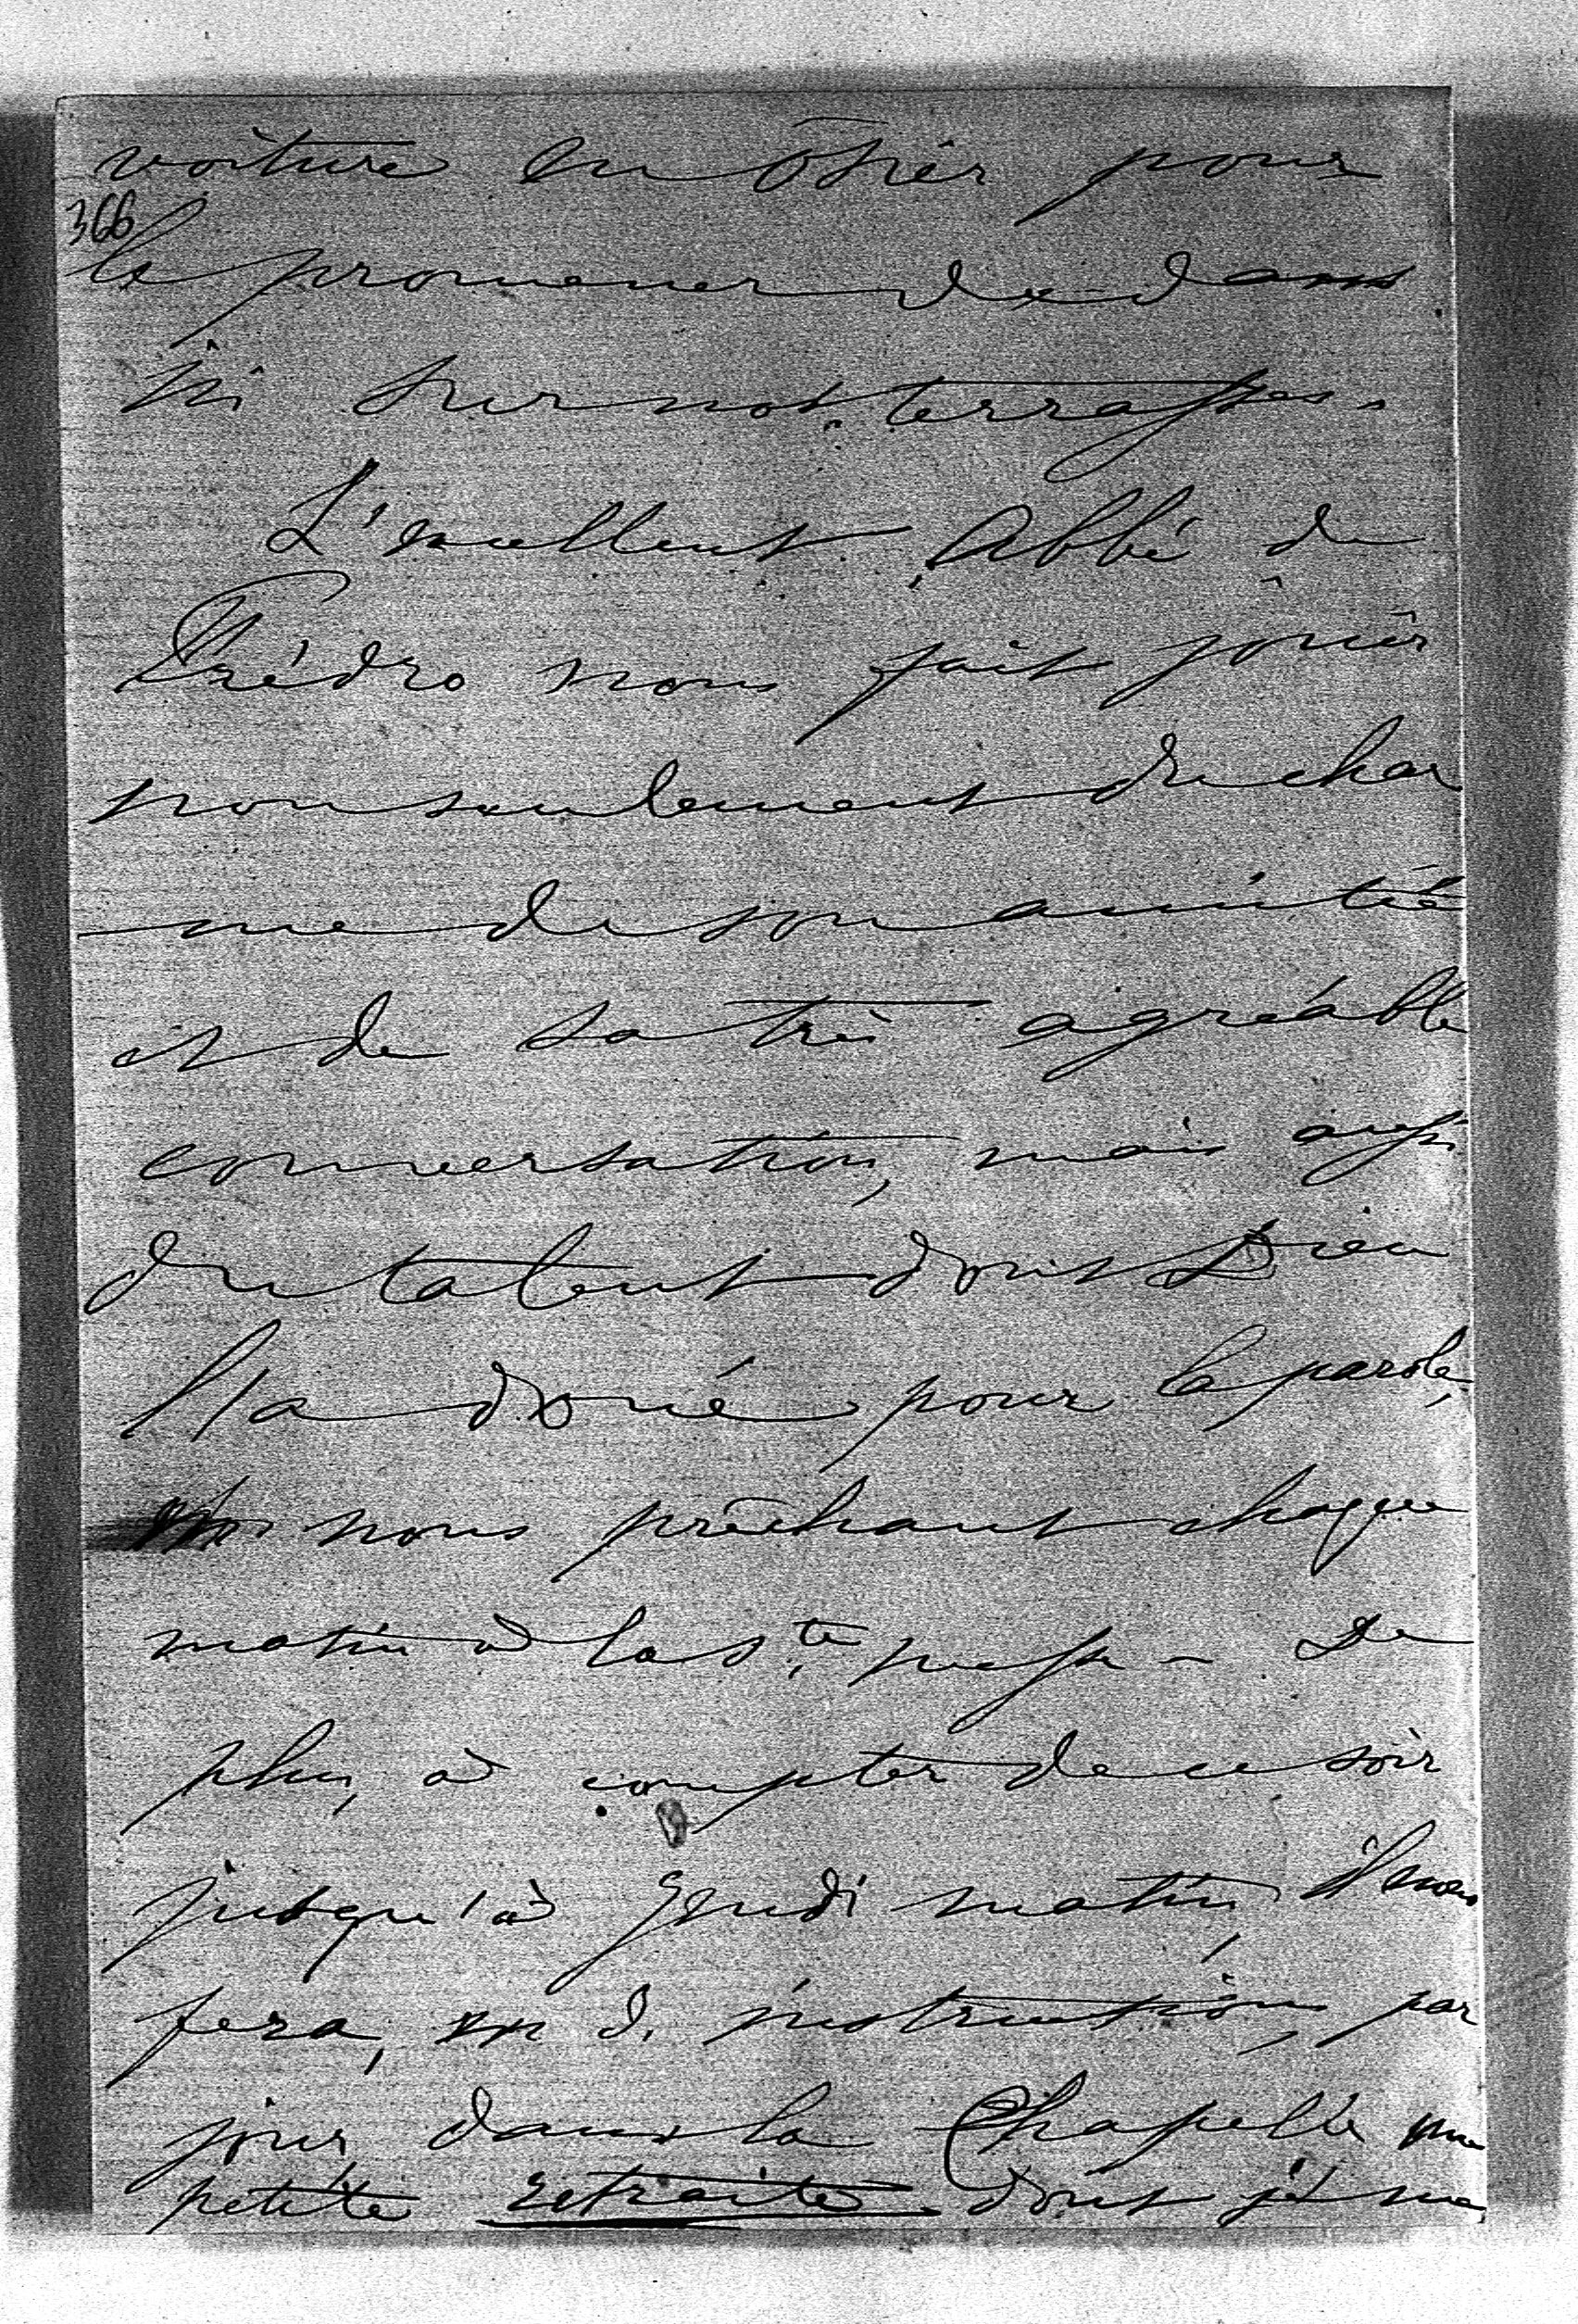 voiture en osier pour
366
le promener de dans
ici sur nos terrasses.
L'excellent Abbé de
Prédro nous fait jouir
non seulement du char
me de son amitié
et de sa très agréable
conversation, mais aussi
du talent dont Dieu
l'a doué pour la parole,
nous prêchant chaque
matin à la Ste messe - De
plus, à compter de ce soir
jusqu'à Jeudi matin, il nous
fera, instructions, par
jour, dans la Chapelle une
petite retraite dont je me